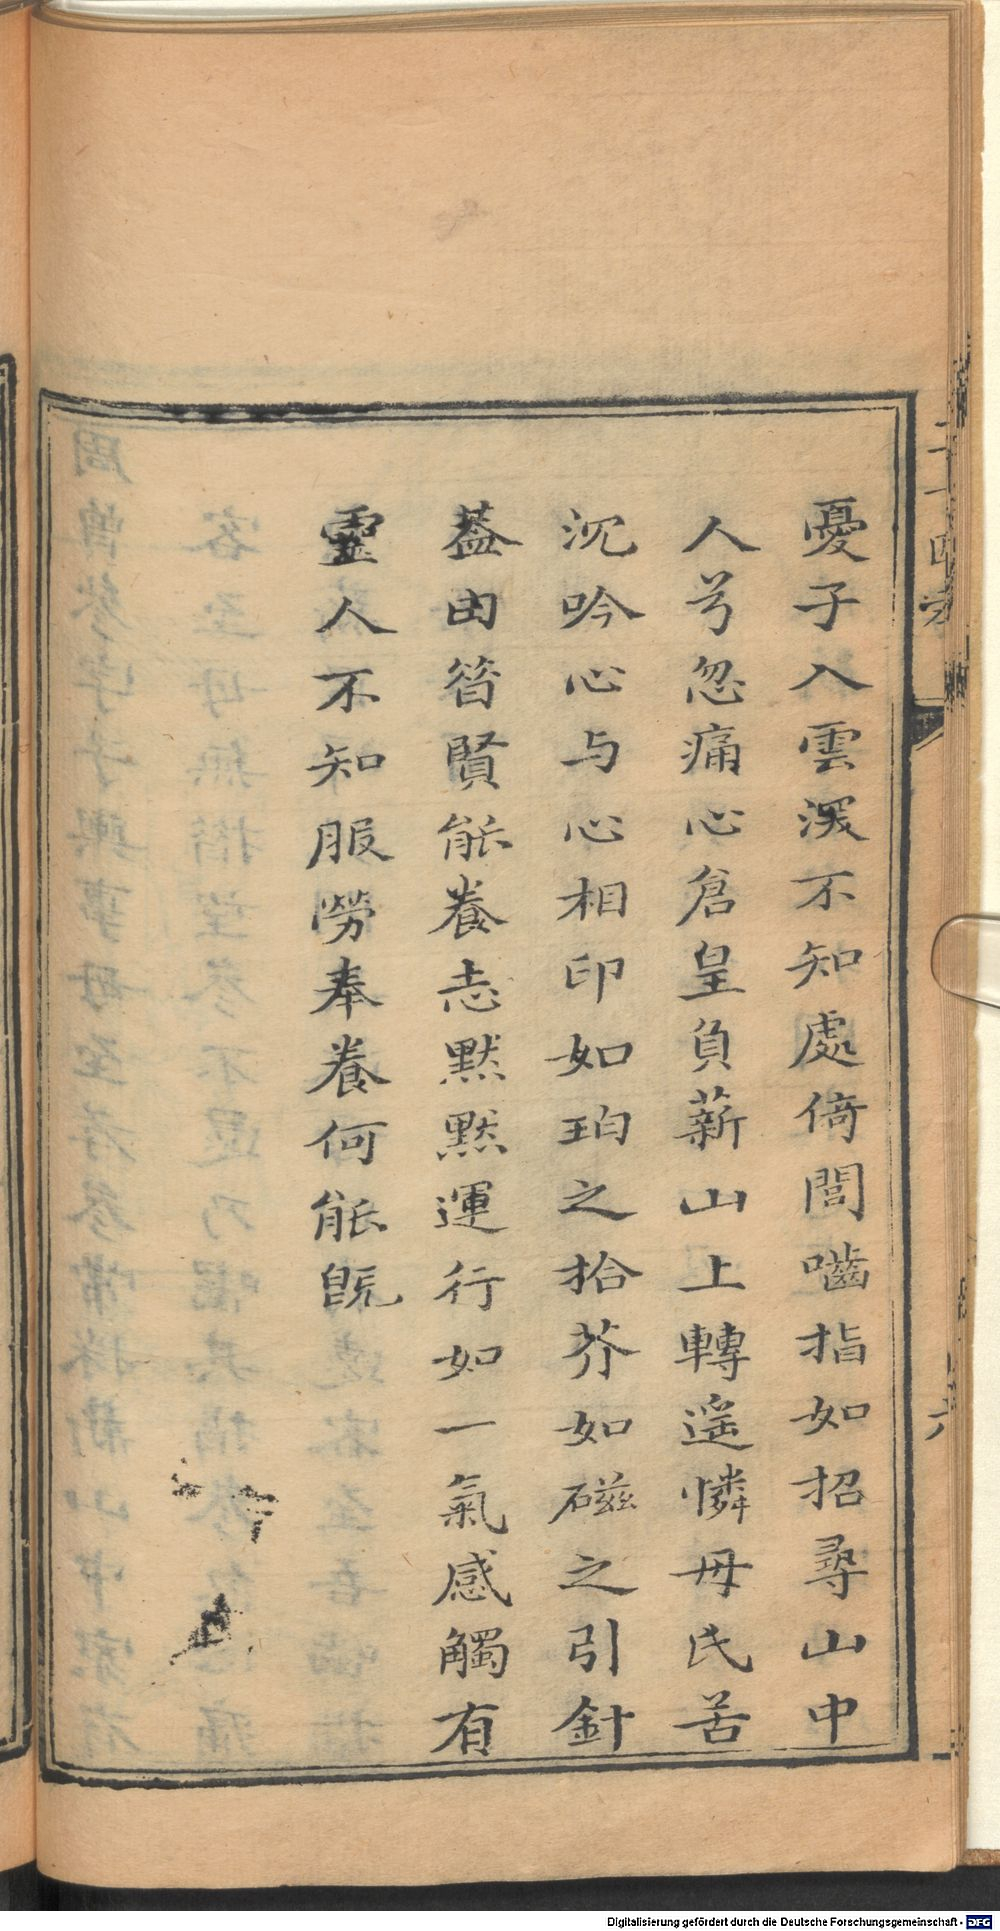 憂子入雲深不知處倚閭嚙指如招尋山中
人兮忽痛心倉皇負薪山上轉遥憐母氏苦
沉吟心与心相印如珀之拾芥如磁之引針
葢由昝賢能養志默默運行如一氣感觸有
靈人不知服勞奉養何能既
六
Digitalisierung gefördert durch die Deutsche Forschungsgemeinschaft - DFG